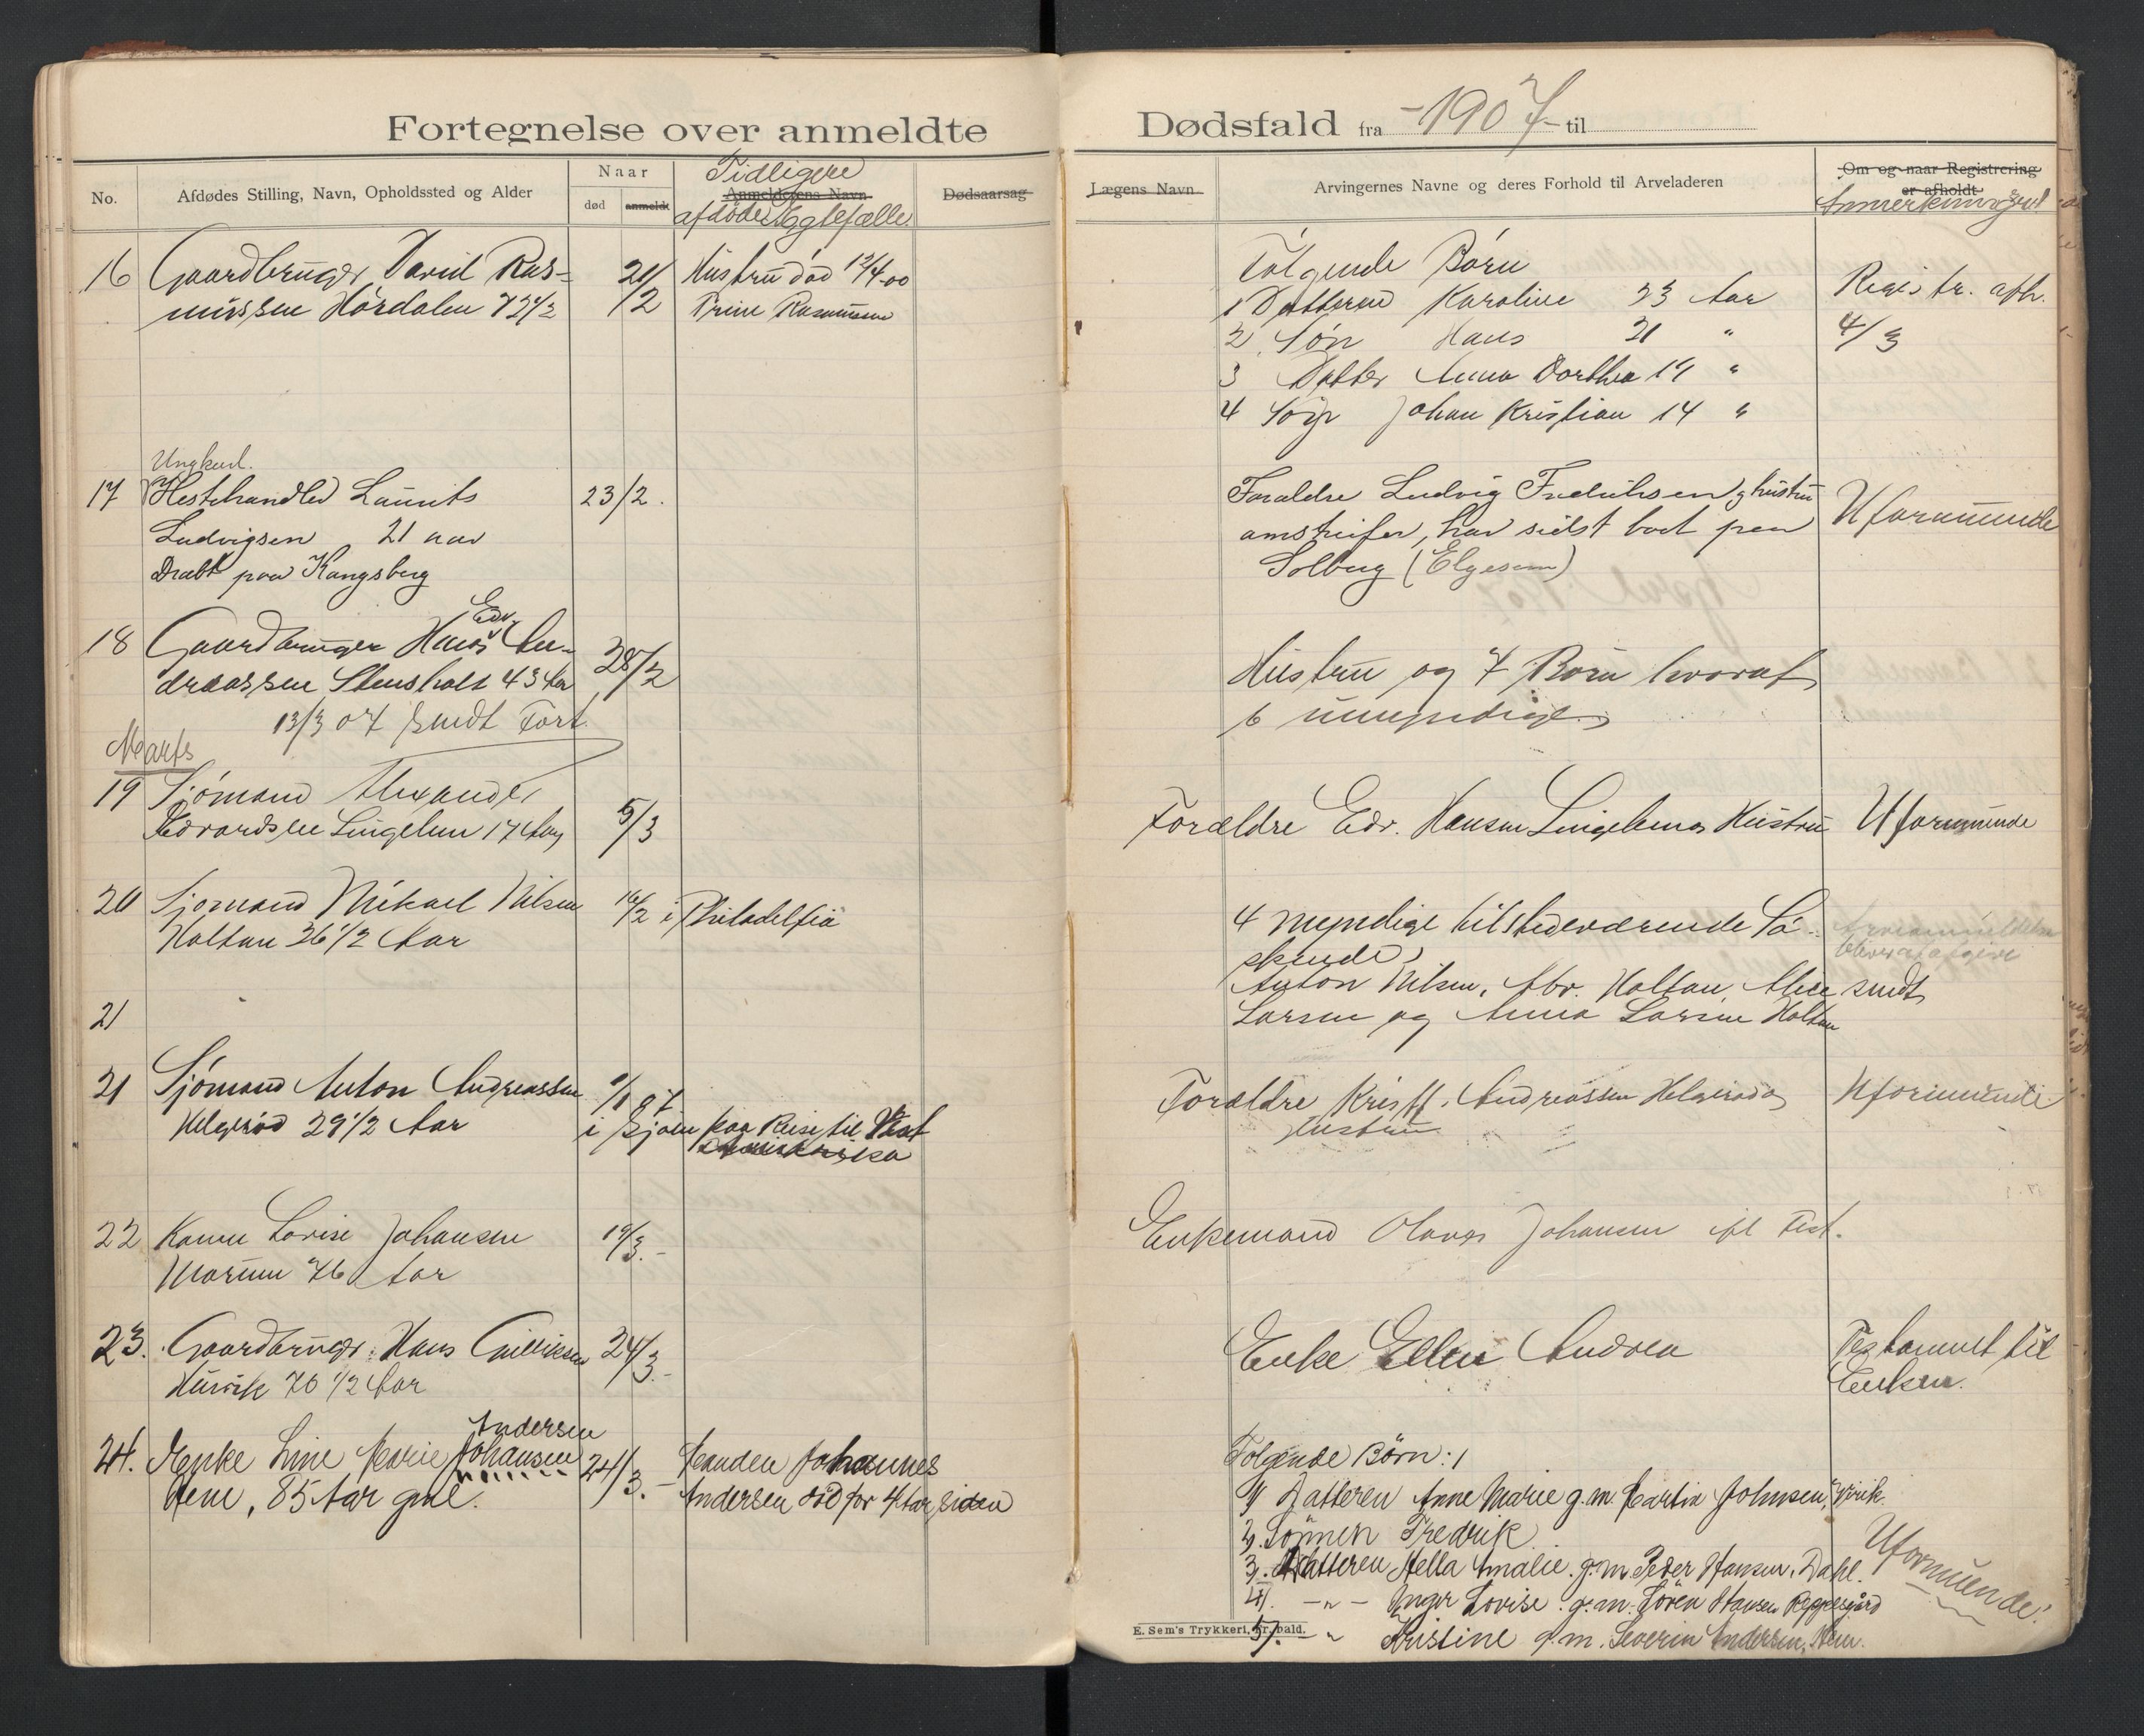 Fortegnelse over anmeldte
Dødsfald fra -1907- til
No.
Afdødes Stilling, Navn, Opholdssted og Alder
Naar
død
anmeldt
Tidligere
Anmelderens Navn
afdøde Egtefælle
Dødsaarsag
Lægens Navn
Arvingernes Navne og deres Forhold til Arveladeren
Om og naar Registrering
er afholdt
16 Gaardbruger David Ras-
mussen Hørdalen 72 1/2
21/2
Hustru død 12/4 00
Trine Rasmussen
Følgende Børn
1 Datteren Karoline 23 Aar
2 Søn Hans 21 "
3 Datter Anna Dorthea 19 "
4 Søn Johan Kristian 14 "
Registr. afh.
4/3
Ungkarl.
17 Hestehandler Laurits
Ludvigsen 21 aar
Dræbt paa Kongsberg
23/2.
Forældre Ludvig Fredriksen og hustru
omstreifer, har sidst boet paa
Solberg (Elgesem)
Uformuende
18 Gaardbruger Hans Edv. An-
dreassen Stensholt 43 Aar
13/3 07 sendt Fort
28/2
Hustru og 7 Børn hvoraf
6 umyndige
Marts
19 Sjømand Alexander
Edvardsen Lingelem 17 Aar
5/3
Forældre Edv. Hansen Lingelem og Hustru
Uformuende
20 Sjømand Mikael Nilsen
Holtan 36 1/2 Aar
16/2 i Philadelfia
4 myndige tilstedeværende Sø-
skende
Anton Nilsen, Abr. Holtan, Alice
Larsen og Anna Larsen Holtan
sendt
21
21 Sjømand Anton Andreassen
Helgerød 29 1/2 Aar
i Sjøen paa Reise til Vest
Forældre Krist. Andreassen Helgerød og
Hustru
Uformuende
22 Karen Lovise Johansen
Marum 76 Aar
19/3.-
Enkemand Olaves Johansen ifl Test.
23. Gaardbruger Hans Gulliksen
Huvik 70 1/2 Aar
24/3.-
Enke Ellen Andrea
Testament til
Enken.
24. Enke Line Marie Johansen
Andersen
Hem, 85 Aar gml.
24/3.-
Manden Johannes
Andersen død for 4 Aar siden
Følgende Børn:
1) Datteren Anne Marie g.m. Martin Johnsen,
2). Sønnen Fredrik
3). Datteren Hella Amalie. g.m. Peder Hansen, Dahl.
4). -"- Inger Lovise. g.m. Søren Hansen
5). -"- Kristine g.m. Severin Andersen, Hem.
Uformuende!
E. Sem's Trykkeri, Fr.hald.